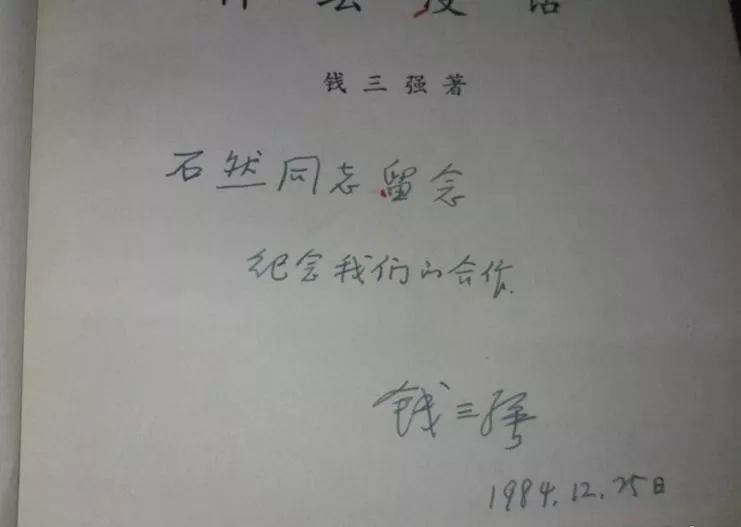 科坛漫话
钱三强著
石然同志留念
纪念我们的合作.
钱三强
1984.12.25日